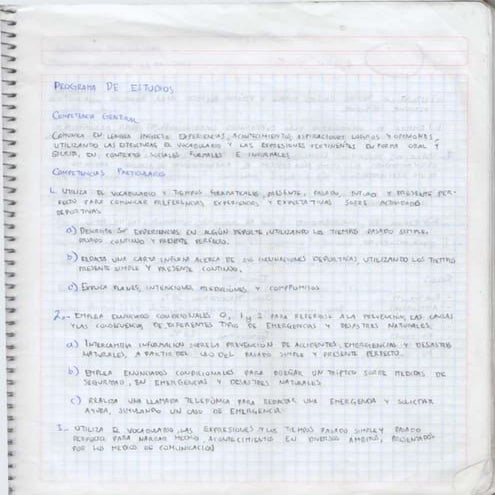 PROGRAMA DE ESTUDIOS
COMPETENCIA GENERAL
COMUNICA EN LENGUA INGLESA EXPERIENCIAS, ACONTECIMIENTOS, ASPIRACIONES LOGROS Y OPINIONES,
UTILIZANDO LAS ESTRUCTURAS EL VOCABULARIO Y LAS EXPRESIONES PERTINENTES EN FORMA ORAL Y
ESCRITA, EN CONTEXTO SOCIALES FORMALES E INFORMALES
COMPETENCIAS PARTICULARES
1. UTILIZA EL VOCABULARIO Y TIEMPOS GRAMATICALES, PRESENTE, PASADO, FUTURO Y PRESENTE PER-
FECTO PARA COMUNICAR PREFERENCIAS, EXPERIENCIAS Y EXPECTATIVAS SOBRE ACTIVIDADES
DEPORTIVAS
a) DESCRIBE SUS EXPERIENCIAS EN ALGÚN DEPORTE, UTILIZANDO LOS TIEMPOS PASADO SIMPLE,
PASADO CONTINUO Y PRESENTE PERFECTO.
b) REDACTA UNA CARTA INFORMAL ACERCA DE SUS INCLINACIONES DEPORTIVAS, UTILIZANDO LOS TIEMPOS
PRESENTE SIMPLE Y PRESENTE CONTINUO.
c) EXPLICA PLANES, INTENCIONES, PREDICCIONES Y COMPROMISOS
2.- EMPLEA ENUNCIADOS CONDICIONALES 0, 1 y 2 PARA REFERIRSE A LA PREVENCION, LAS CAUSAS
Y LAS CONSECUENCIAS DE DIFERENTES TIPOS DE EMERGENCIAS Y DESASTRES NATURALES.
a) INTERCAMBIA INFORMACION SOBRE LA PREVENCION DE ACCIDENTES, EMERGENCIAS Y DESASTRES
NATURALES, A PARTIR DEL USO DEL PASADO SIMPLE Y PRESENTE PERFECTO.
b) EMPLEA ENUNCIADOS CONDICIONALES PARA DISEÑAR UN TRIPTICO SOBRE MEDIDAS DE
SEGURIDAD, EN EMERGENCIAS Y DESASTRES NATURALES
c) REALIZA UNA LLAMADA TELEFÓNICA PARA REPORTAR UNA EMERGENCIA Y SOLICITAR
AYUDA, SIMULANDO UN CASO DE EMERGENCIA
3.- UTILIZA EL VOCABULARIO, LAS EXPRESIONES Y LOS TIEMPOS PASADO SIMPLE Y PASADO
PERFECTO PARA NARRAR HECHOS ACONTECIMIENTOS EN DIVERSOS AMBITOS, PRESENTADOS
POR LOS MEDIOS DE COMUNICACION